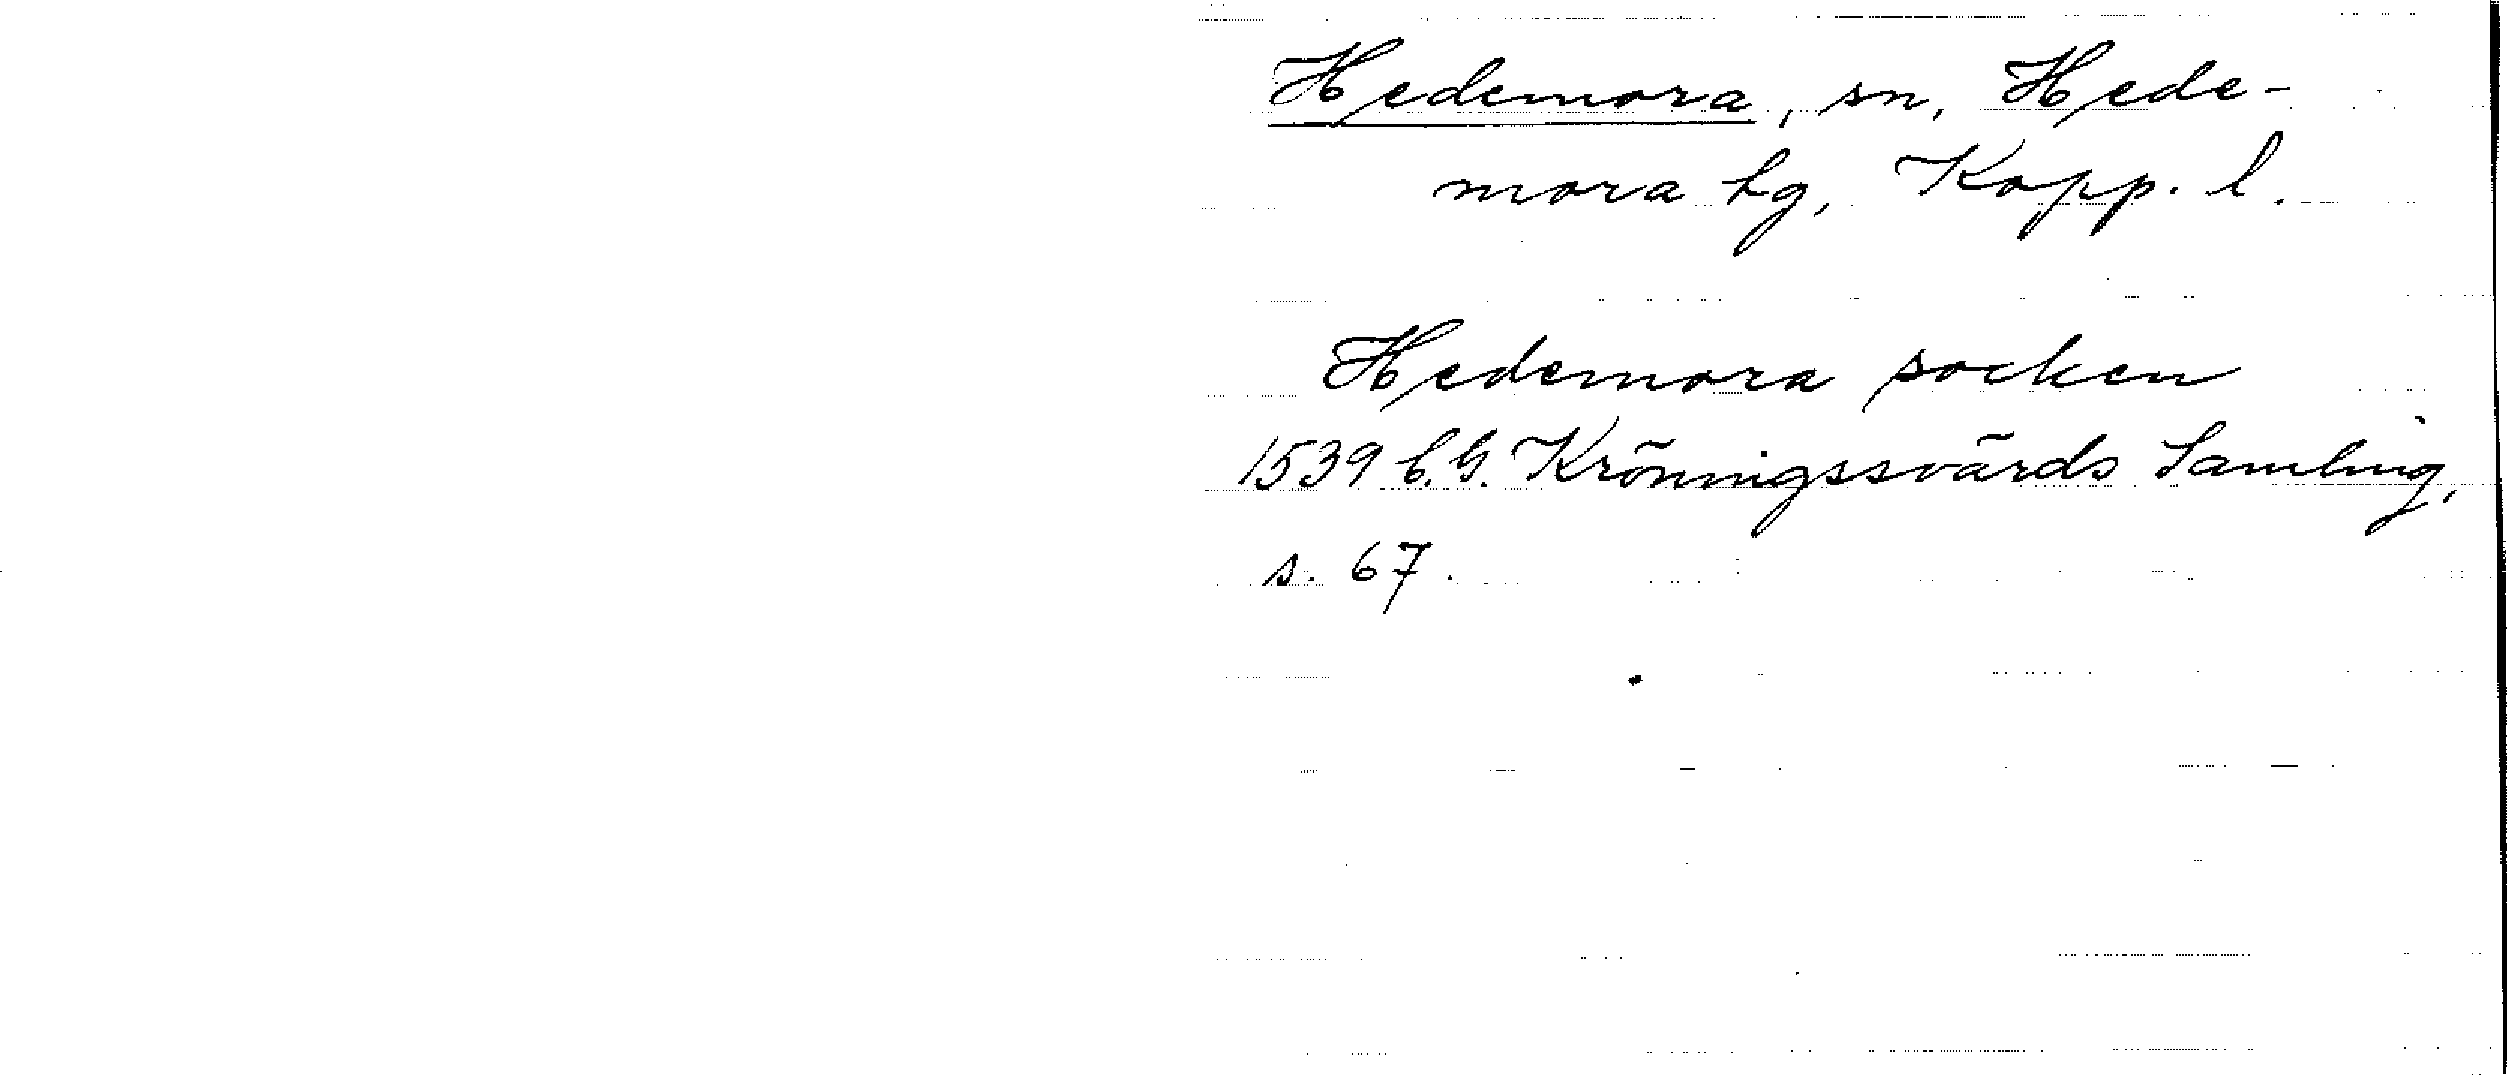 Hedemora, sn, Hede-
mora tg, Kopp. l.
Hedemora socken
1539 C.G. Kröningssvärds Samling,
s. 67.